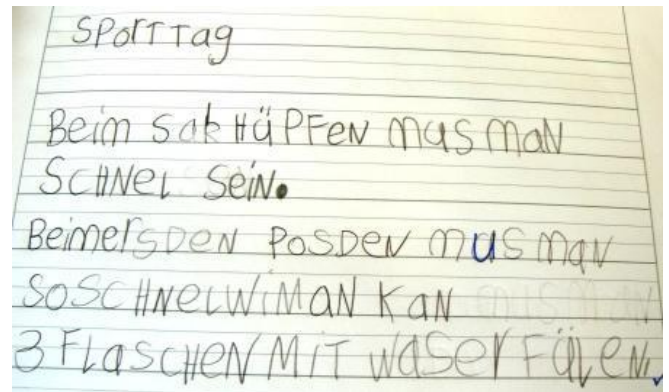 SPorTTag
Beim Sak HÜPFEN mus maN
SCHNeL SeiN.
BeimersDeN PosDeN mus man
SOSCHNeLWiMaN KaN mus maN
3 FLaSCHeN MiT WaSer FüLeN.